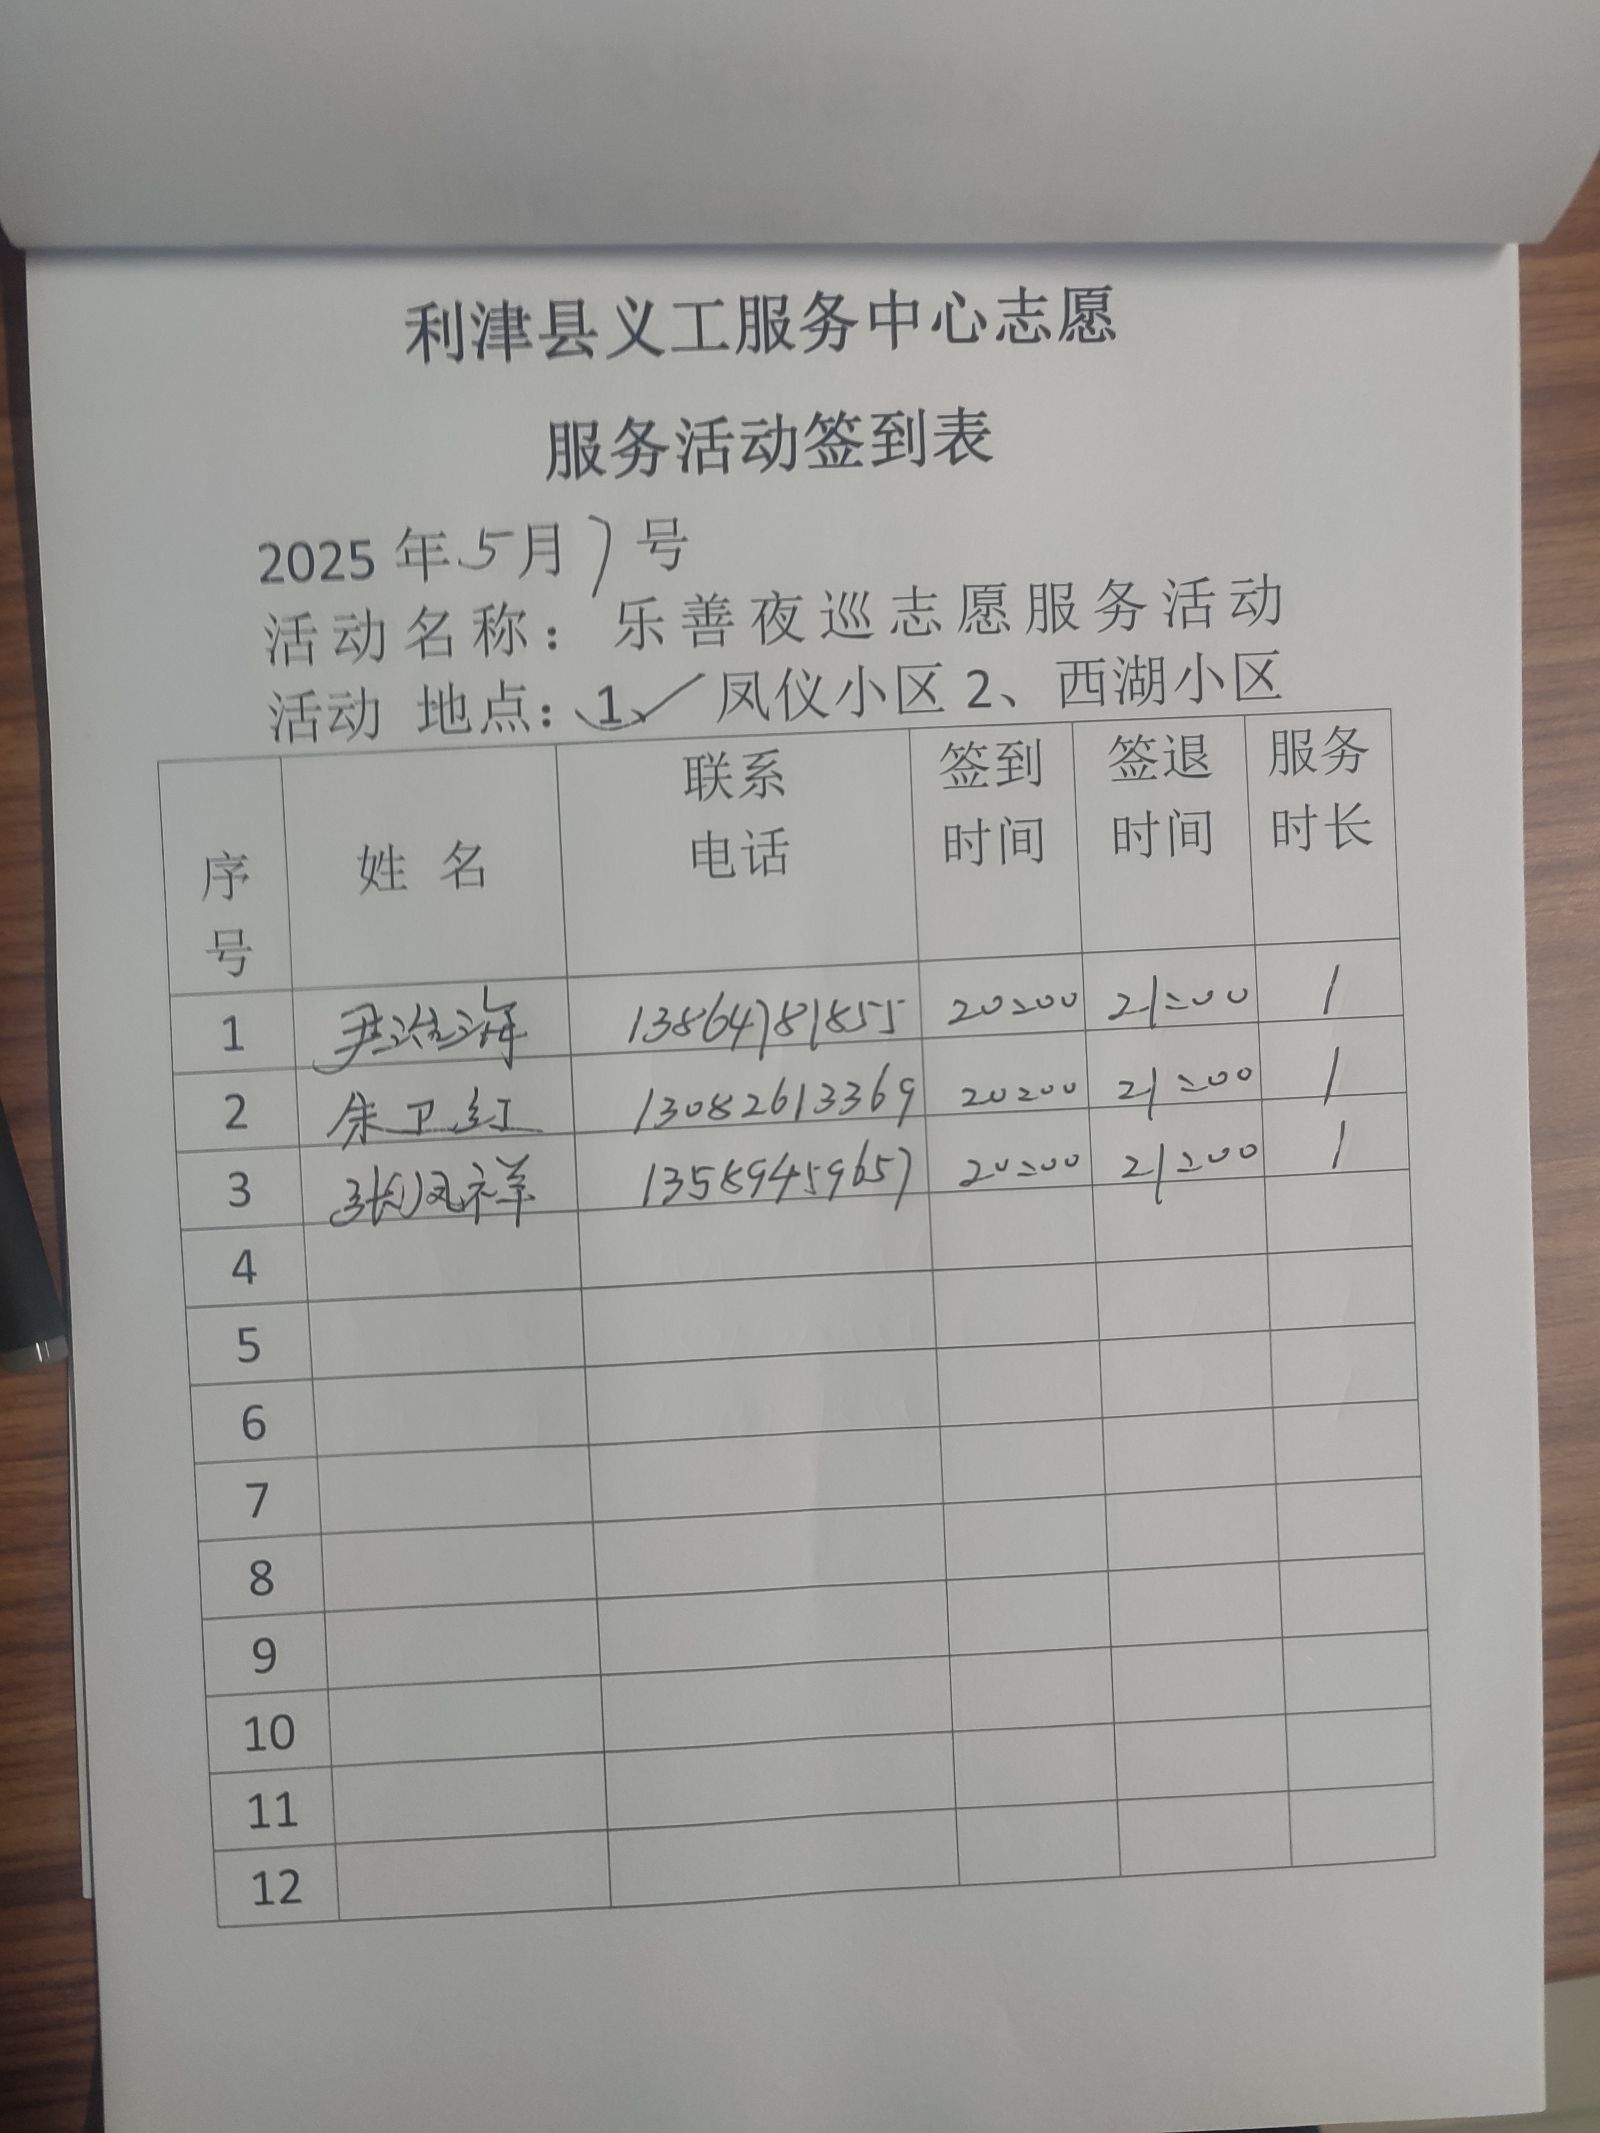 利津县义工服务中心志愿
服务活动签到表
2025 年 5 月 7 号
活动名称：乐善夜巡志愿服务活动
活动 地点：1、✓凤仪小区 2、西湖小区
序号 姓 名 联系电话 签到时间 签退时间 服务时长
1 尹治海 13864781855 20:00 21:00 1
2 朱卫红 13082613369 20:00 21:00 1
3 张凤祥 13589459657 20:00 21:00 1
4
5
6
7
8
9
10
11
12